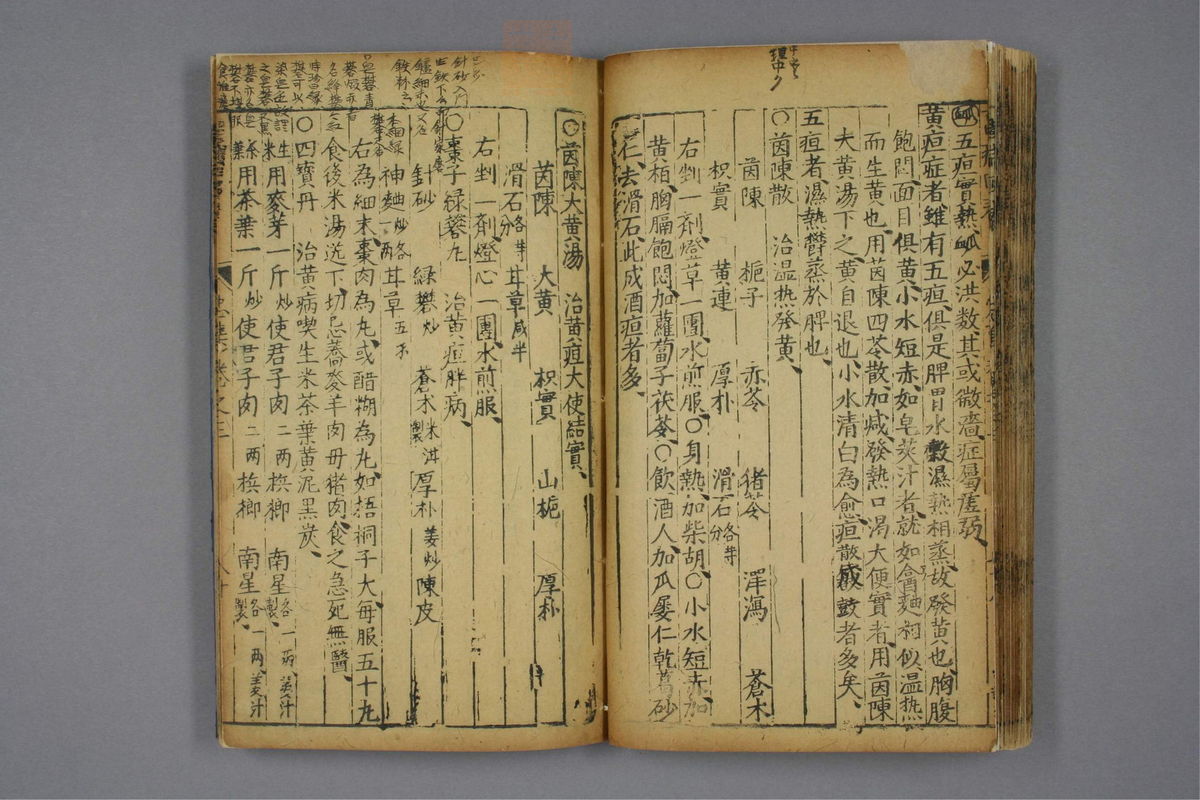 脈五疸實熱脈必洪数其或微濇症屬虛弱
黃疸症者雖有五疸俱是脾胃水穀濕熱相蒸故發黃也胸腹
飽悶面目俱黃小水短赤如皂莢汁者就如盦麯相似溫热
而生黃也用茵陳四苓散加减發熱口渴大便實者用茵陳
大黃湯下之黃自退也小水清白為愈疸散成鼓者多矣
五疸者濕熱欝蒸於脾也
○茵陳散 治温热發黃
茵陳 梔子 赤苓 猪苓 澤瀉 蒼木
枳實 黃連 厚朴 滑石各等分
右剉一劑燈草一團水煎服○身熱加柴胡○小水短赤加
黃栢胸膈飽悶加蘿蔔子茯苓○飲酒人加瓜蔞仁乾葛砂
仁去滑石此成酒疸者多
○茵陳大黃湯 治黃疸大使結實
茵陳 大黃 枳實 山梔 厚朴
滑石各等分 甘草减半
右剉一劑燈心一團水煎服
○棗子綠礬丸 治黃疸胖病
針砂 綠礬炒 蒼木米泔製 厚朴姜炒 陳皮
神麯炒各一两 甘草五不
右為細末棗肉為丸或醋糊為丸如梧桐子大每服五十丸
食後米湯送下切忌蕎麥羊肉母猪肉食之急死無醫
○四寶丹 治黃病喫生米茶葉黃泥黑炭
生米用麥芽一斤炒使君子肉二两梹榔 南星各一两製姜汁
茶葉用茶葉一斤炒使君子肉二两梹榔 南星各一两製姜汁